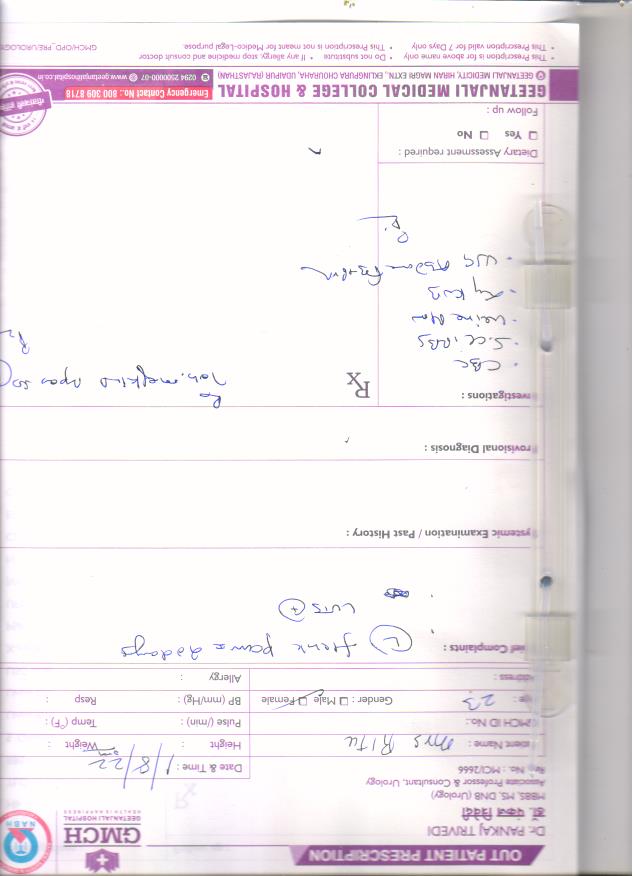 OUT PATIENT PRESCRIPTION
Dr. PANKAJ TRIVEDI
डॉ. पंकज त्रिवेदी
MBBS, MS, DNB (Urology)
Associate Professor & Consultant, Urology
Reg. No. : MCI/2666
GMCH
GEETANJALI HOSPITAL
HEALTH IS HAPPINESS
NABH
Patient Name : Mrs Ritu
Date & Time : 1/8/22
GMCH ID No.:
Height :
Weight :
Age : 23
Gender : Male Female
Pulse (/min) :
Temp (°F) :
Address :
BP (mm/Hg) :
Resp :
Allergy :
Chief Complaints :
(L) flank pain
LUTS (+)
Systemic Examination / Past History :
Provisional Diagnosis :
Investigations :
Rx
CBC
S.
Urine
X-ray KUB
USG
Tab.
Dietary Assessment required :
Yes No
Follow up :
GEETANJALI MEDICAL COLLEGE & HOSPITAL
Emergency Contact No.: 800 309 8718
GEETANJALI MEDICITY, HIRAN MAGRI EXTN., EKLINGPURA CHOURAHA, UDAIPUR (RAJASTHAN)
0294 2500000-07 www.geetanjalihospital.co.in
• This Prescription is for above name only • Do not substitute • If any allergy, stop medicine and consult doctor
• This Prescription valid for 7 Days only • This Prescription is not meant for Medico-Legal purpose.
GMCH/OPD/PRE/UROLOGY